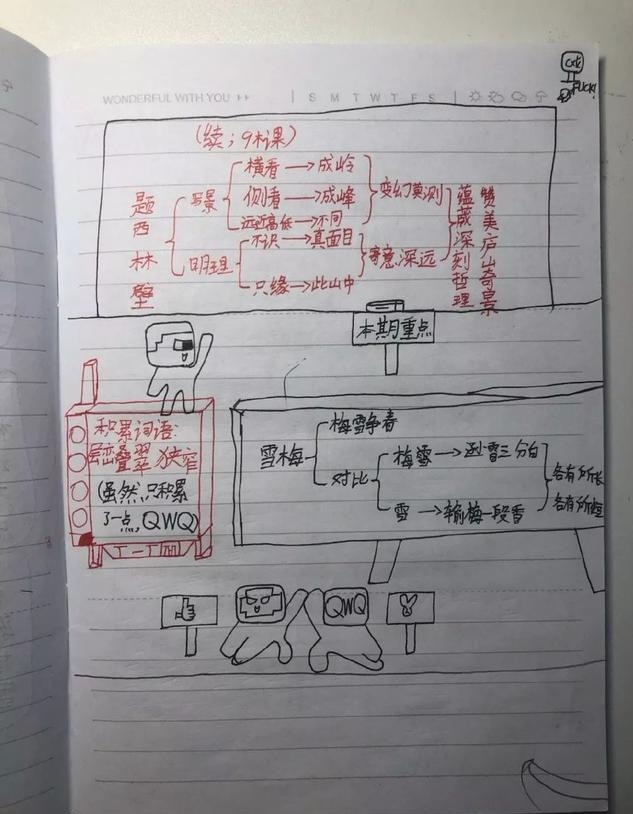 WONDERFUL WITH YOU
S M T W T F S
FUCK!
(续;9木课)
题西林壁
写景
横看→成岭
侧看→成峰
远近高低→不同
变幻莫测
明理
不识→真面目
只缘→此山中
寄意深远
蕴藏深刻哲理
赞美庐山奇景
本期重点
积累词语:
层峦叠翠 狭窄
(虽然只积累
了一点,QWQ)
雪梅
梅雪争春
对比
梅雪→逊雪三分白
雪→输梅一段香
各有所长
各有所短
QWQ